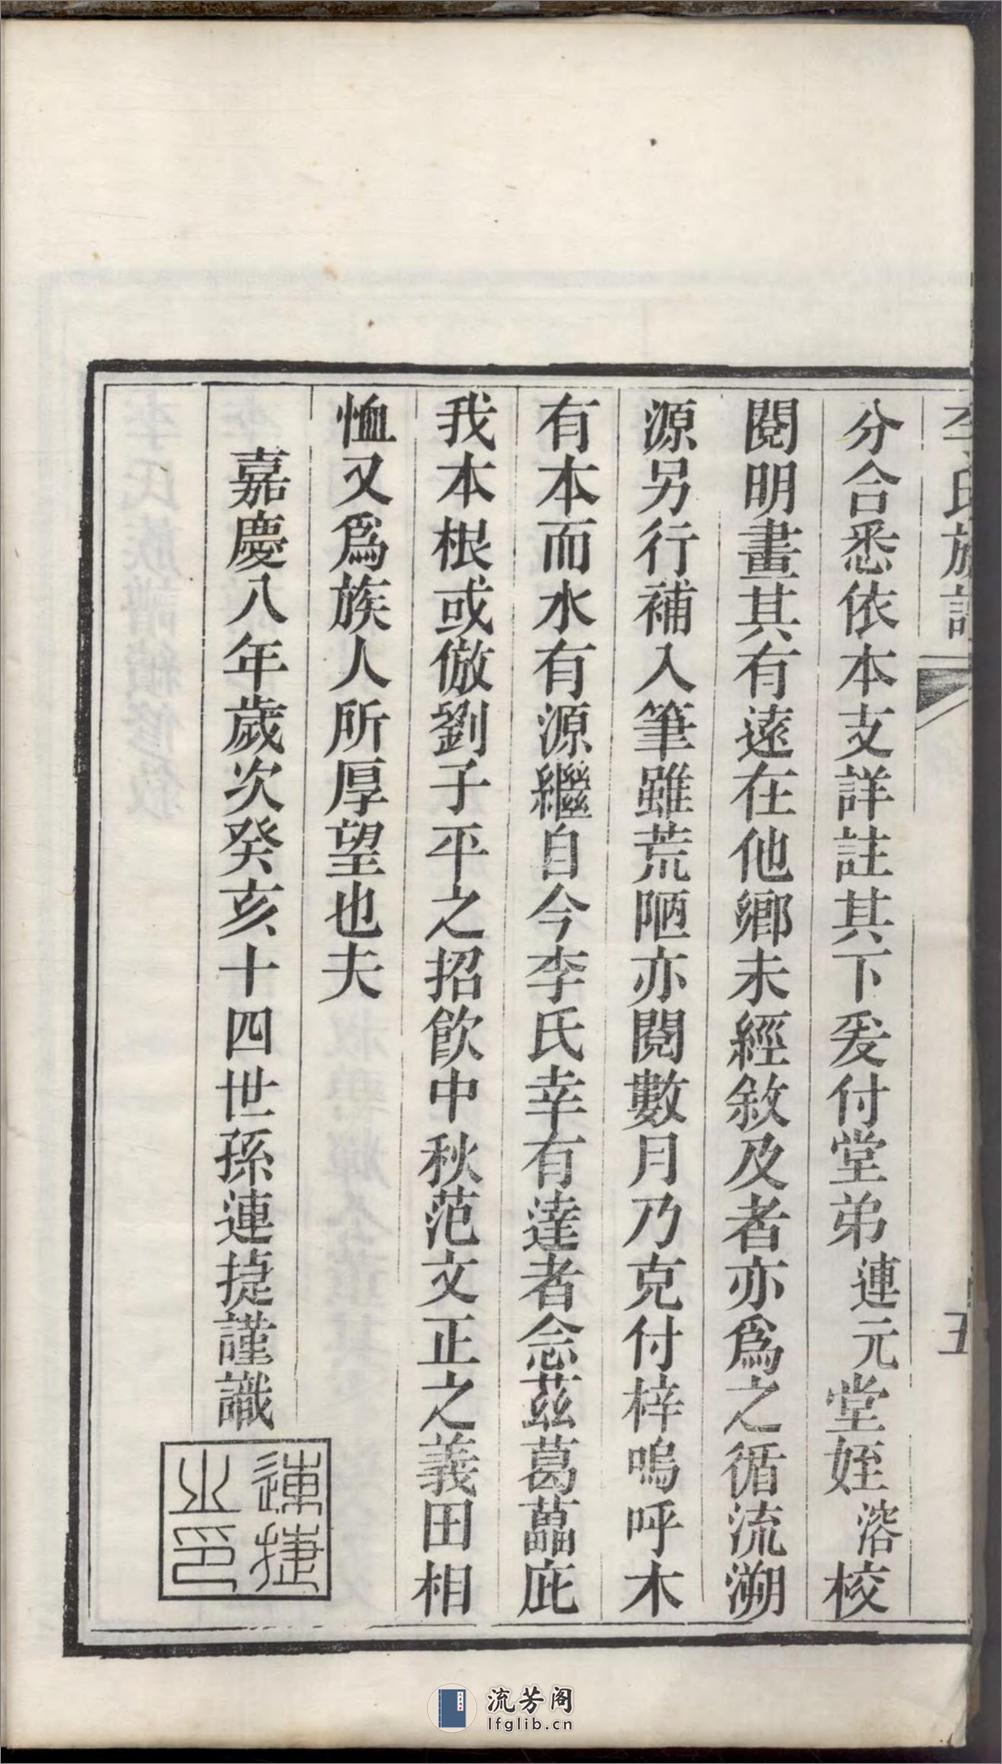 李氏族譜
五
分合悉依本支詳註其下爰付堂弟連元堂姪溶校
閱明晝其有遠在他鄉未經敘及者亦爲之循流溯
源另行補入筆雖荒陋亦閱數月乃克付梓嗚呼木
有本而水有源繼自今李氏幸有達者念茲葛藟庇
我本根或倣劉子平之招飲中秋范文正之義田相
恤又爲族人所厚望也夫
嘉慶八年歲次癸亥十四世孫連捷謹識
連捷之印
流芳阁
lfglib.cn